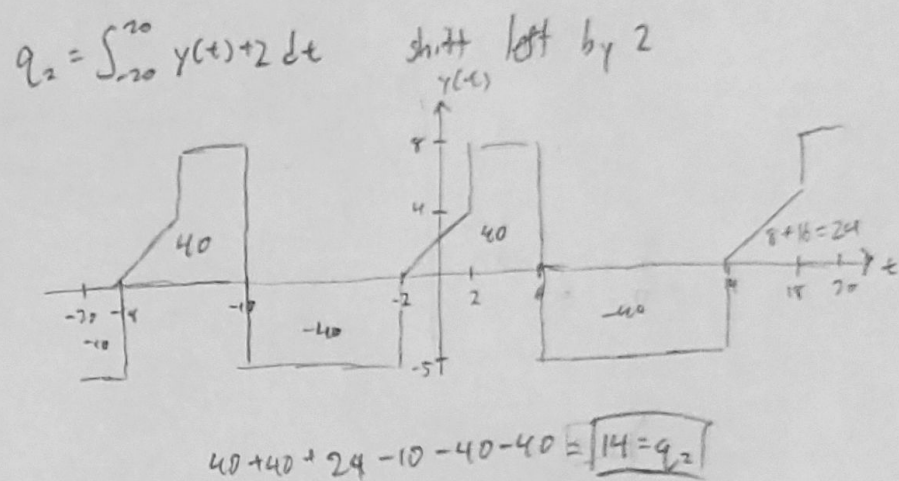 q₂ = ∫₋₂₀²⁰ y(t)+2 dt shift left by 2
y(t)
8
4
40
40
8+16=24
t
-20
-18
-10
-2
2
14
18
20
-10
-40
-40
-5
40+40+24-10-40-40 = 14=q₂